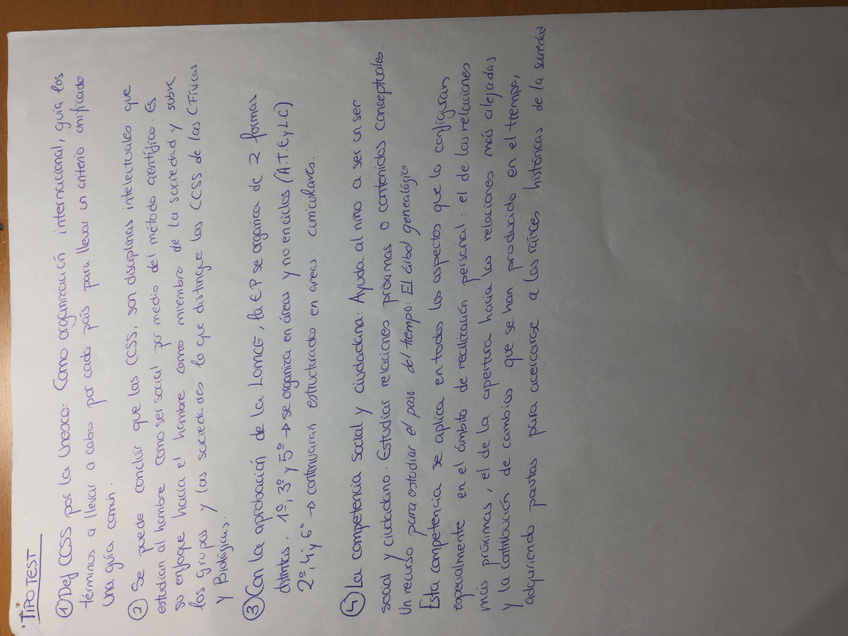 TIPO TEST
① Def CCSS por la Unesco: Como organización internacional, guía los
términos a llevar a cabo por cada país para llevar un criterio unificado
una guía común.
② Se puede concluir que las CCSS, son disciplinas intelectuales que
estudian al hombre como ser social por medio del método científico. Es
su enfoque hacia el hombre como miembro de la sociedad y sobre
los grupos y las sociedades lo que distingue las CCSS de las CFísicas
y Biológicas.
③ Con la aprobación de la LOMCE, la E.P se organiza de 2 formas
distintas. 1º, 3º y 5º → se organiza en áreas y no en ciclos (A.T.E y L C)
2º, 4º y 6º → continuarán estructurados en áreas curriculares.
④ La competencia social y ciudadana: Ayuda al niño a ser un ser
social y ciudadano. Estudiar relaciones próximas o contenidos conceptuales.
Un recurso para estudiar el paso del tiempo: El árbol genealógico
Esta competencia se aplica en todos los aspectos que la configuran
especialmente en el ámbito de realización personal: el de las relaciones
más próximas, el de la apertura hacia las relaciones más alejadas
y la contribución de cambios que se han producido en el tiempo,
adquiriendo pautas para acercarse a las raíces históricas de la sociedad